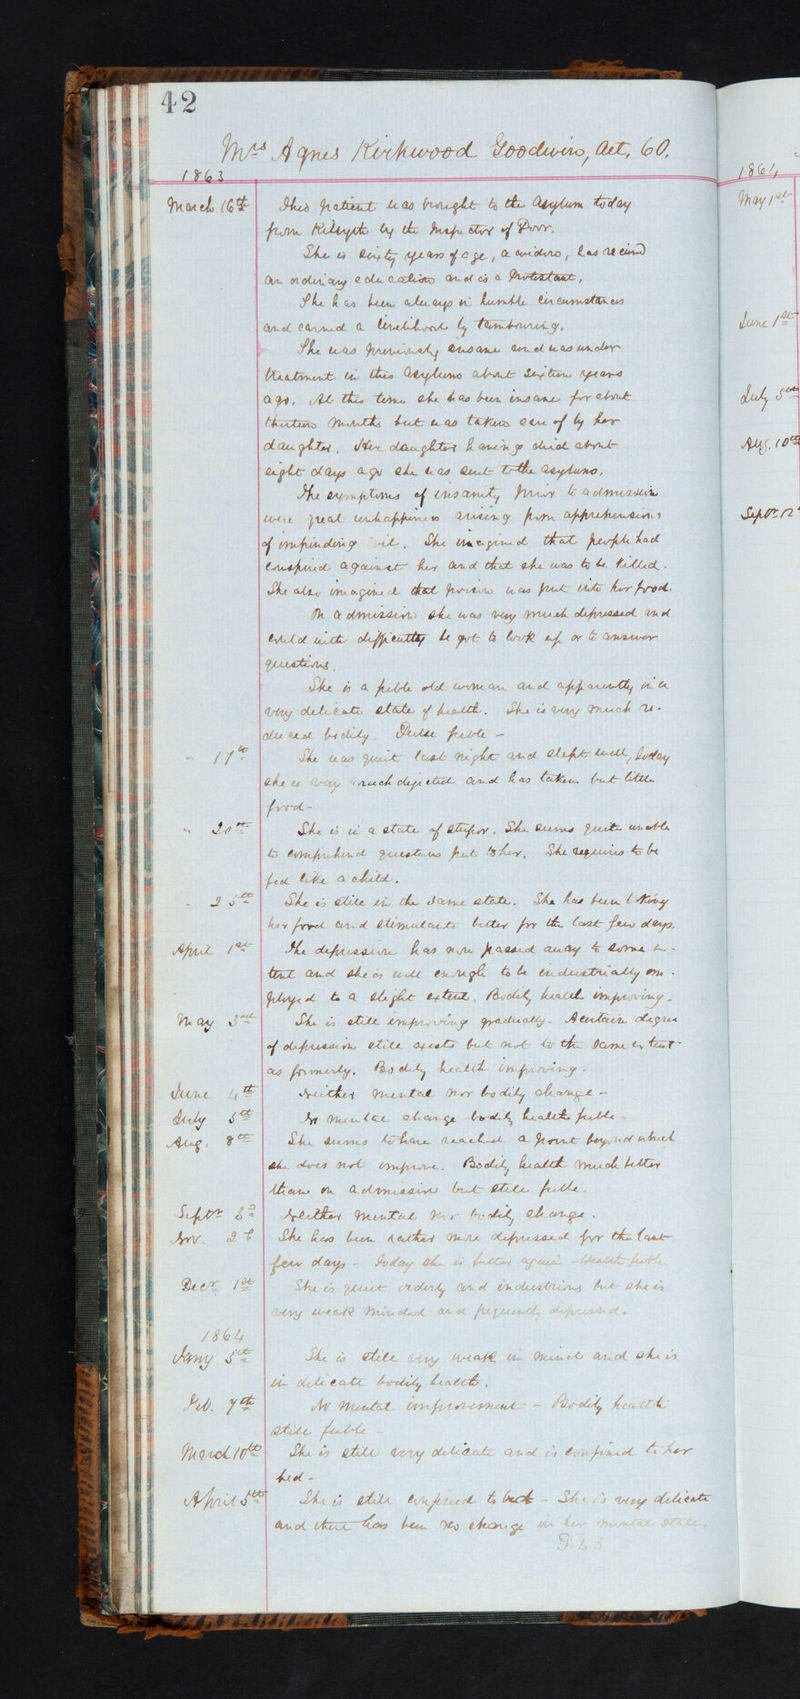 42
Mrs Agnes Kirkwood Goodwin, Aet. 60.
1863
March 16th This patient was brought to the Asylum today
from Kilsyth by the Inspector of Poor.
She is sixty years of age, a widow, has received
an ordinary education and is a Protestant.
She has been always in humble circumstances
and earned a livelihood by tambouring.
She was previously insane and was under
treatment in this Asylum about sixteen years
ago. At this time she has been insane for about
thirteen months but was taken care of by her
daughter. Her daughter having died about
eight days ago she was sent to the asylum.
The symptoms of insanity prior to admission
were great unhappiness arising from apprehensions
of impending evil. She imagined that people had
conspired against her and that she was to be killed.
She also imagined that poison was put into her food.
On admission she was very much depressed and
could with difficulty be got to look up or to answer
questions.
She is a feeble old woman and apparently in a
very delicate state of health. She is very much re-
duced bodily. Pulse feeble -
" 17th She was quiet last night and slept well, today
she is very much dejected and has taken but little
food -
" 20th She is in a state of stupor. She seems quite unable
to comprehend questions put to her. She requires to be
fed like a child.
" 25th She is still in the same state. She has been taking
her food and stimulants better for the last few days.
April 1st The depression has now passed away to some ex-
tent and she is well enough to be industrially em-
ployed to a slight extent. Bodily health improving -
May 3rd She is still improving gradually - A certain degree
of depression still exists but not to the same extent
as formerly. Bodily health improving -
June 4th Neither mental nor bodily change -
July 5th No mental change bodily health feeble -
Aug. 8th She seems to have reached a point beyond which
she does not improve. Bodily health much better
than on admission but still feeble.
Septr 3d Neither mental nor bodily change.
Nov. 2d She has been rather more depressed for the last
few days - Today she is better again - Health feeble
Decr 1st She is quiet orderly and industrious but she is
very weak minded and frequently depressed.
1864
Jany 5th She is still very weak in mind and she is
in delicate bodily health.
Feb. 7th No mental improvement - Bodily health
still feeble -
March 10th She is still very delicate and is confined to her
bed -
April 5th She is still confined to bed - She is very delicate
and there has been no change in her mental state.
P. 43
1864
May 1st
June 1st
July 5th
Aug. 10th
Septr 12